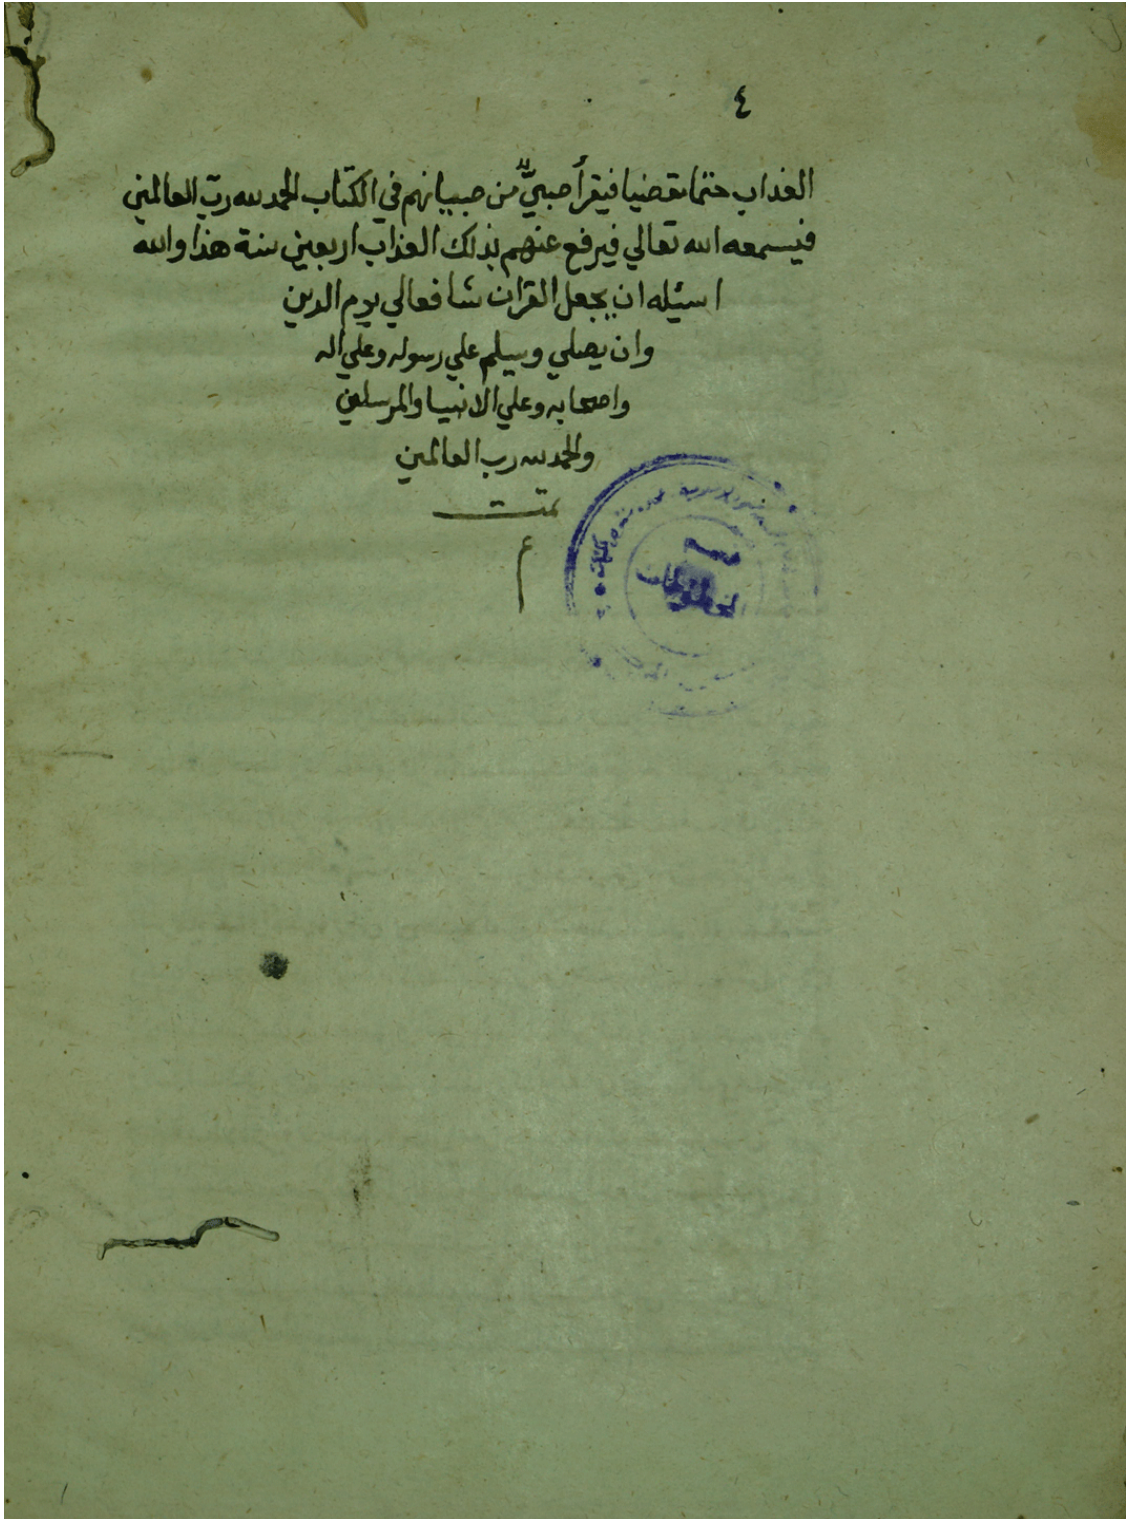 ٤
العذاب حتما مقضيا فيقرأ صبيٌّ من صبيانهم في الكتاب الحمد لله ربّ العالمين
فيسمعه الله تعالي فيرفع عنهم بذلك العذاب اربعين سنة هذا والله
اسئله ان يجعل القران شافعا لي يوم الدين
وان يصلي ويسلم علي رسوله وعلي اله
واصحابه وعلي الانبيا والمرسلين
والحمد لله رب العالمين
تمت
م